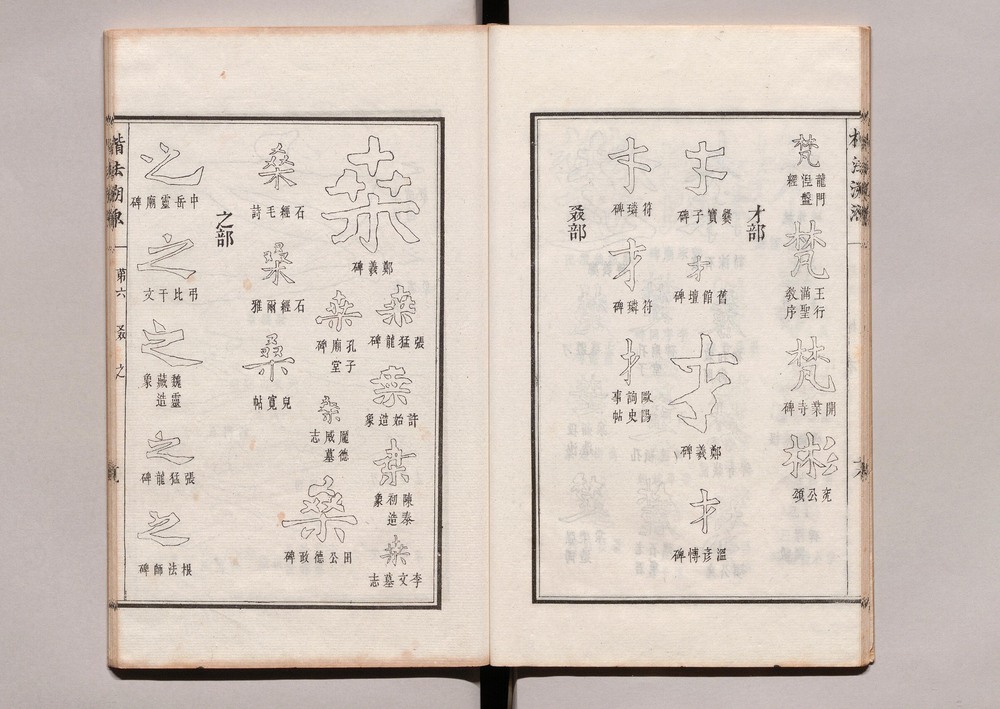 梵
龍門涅盤經
梵
王行滿聖教序
梵
開業寺碑
彬
兗公頌
才部
才
爨寶子碑
才
舊館壇碑
才
鄭義碑
才
溫彥博碑
才
符璘碑
才
符璘碑
才
歐陽詢史事帖
叒部
桒
鄭義碑
桒
張猛龍碑
桒
許始造象
桒
陳泰初造象
桒
李文墓志
桒
孔子廟堂碑
桑
德威墓志
桑
田公德政碑
桑
石經毛詩
桑
石經爾雅
桑
兒寬帖
之部
之
中岳靈廟碑
之
弔比干文
之
魏靈藏造象
之
張猛龍碑
之
根法師碑
楷法溯源
第六
叒
之